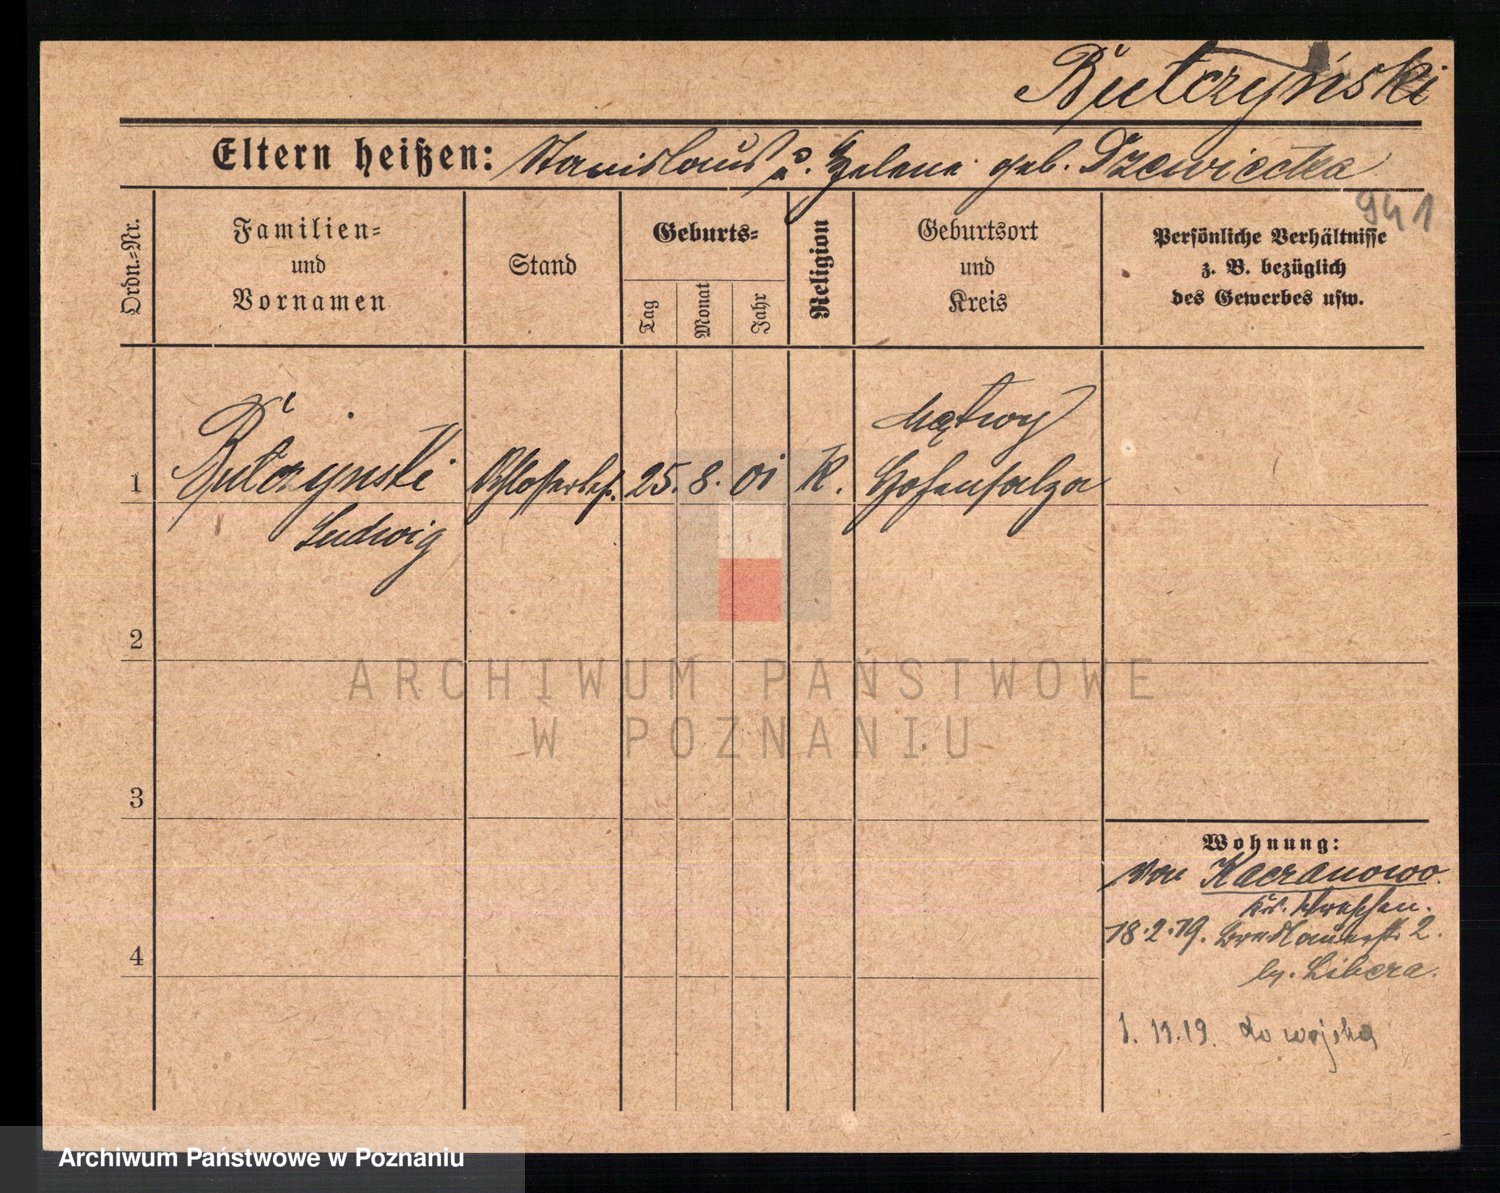 Butczyński
Eltern heißen: Stanislaus u. Helene geb. Drzewiecka
941
Ordn.-Nr.
Familien-
und
Vornamen
Stand
Geburts-
Tag
Monat
Jahr
Religion
Geburtsort
und
Kreis
Persönliche Verhältnisse
z. B. bezüglich
des Gewerbes usw.
1
Butczynski
Ludwig
Schlosserlehrl.
25. 8. 01
K.
Mątwy
Hohensalza
2
3
4
Wohnung:
von Kaczanowo
Kr. Wreschen.
18.2.19. Breslauerstr 2.
by. Libera.
1. 11.19. do wojska
ARCHIWUM PAŃSTWOWE
W POZNANIU
Archiwum Państwowe w Poznaniu